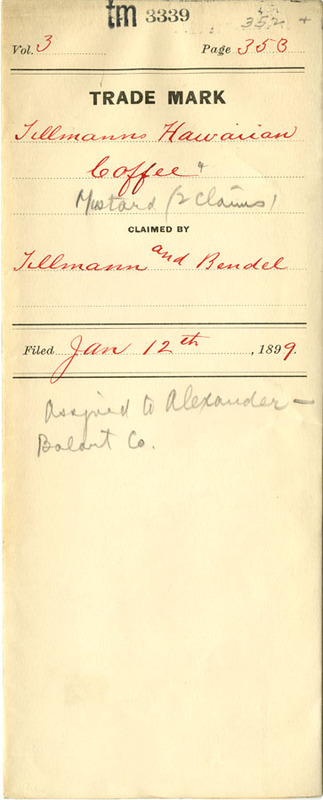 tm 3339
352 +
Vol. 3 Page 353
TRADE MARK
Tillmanns Hawaiian
Coffee &
Mustard (2 Claims)
CLAIMED BY
Tillmann and Bendel
Filed Jan 12th, 1899.
Assigned to Alexander –
Balart Co.